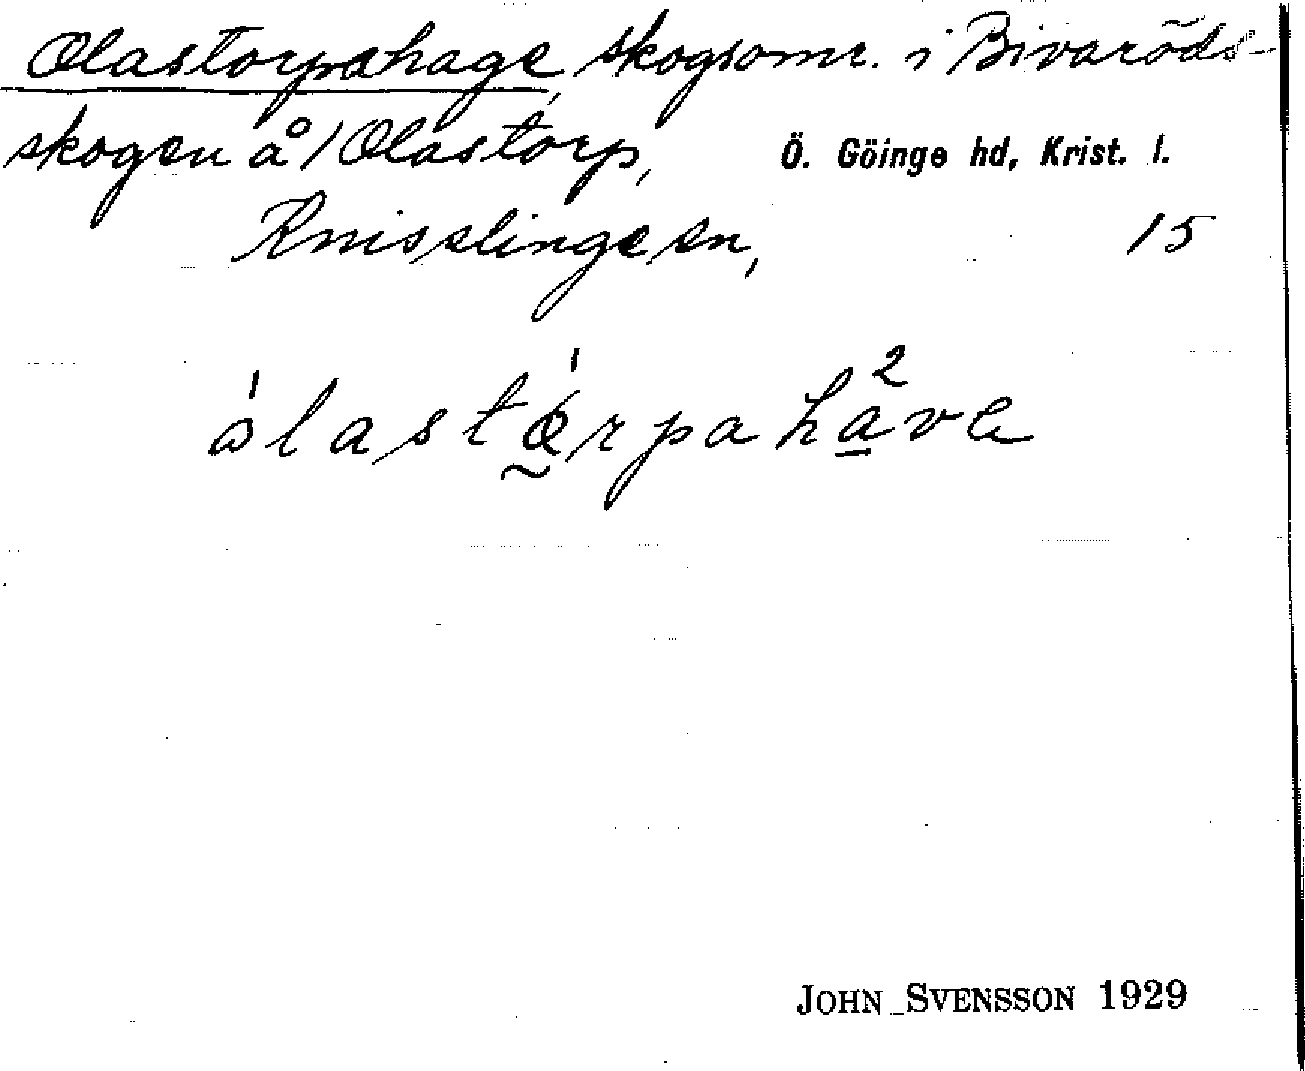 Olastorpahage, skogsomr. i Bivaröds-
skogen å / Olastorp, Ö. Göinge hd, Krist. l.
Knisslinge sn, 15
ólastǿrpahave
JOHN SVENSSON 1929